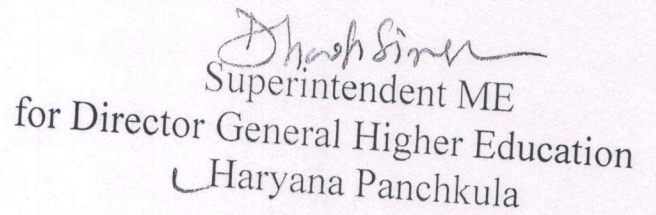 Superintendent ME
for Director General Higher Education
Haryana Panchkula